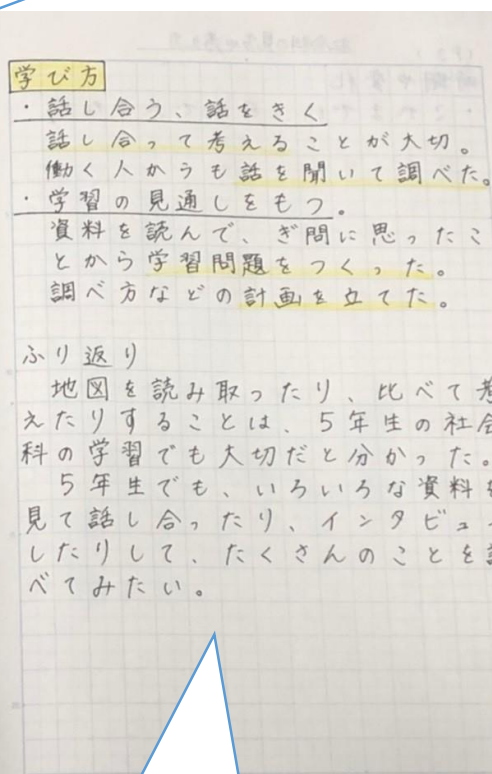 学び方
・話し合う、話をきく
話し合って考えることが大切。
働く人からも話を聞いて調べた。
・学習の見通しをもつ。
資料を読んで、ぎ問に思ったこ
とから学習問題をつくった。
調べ方などの計画を立てた。
ふり返り
地図を読み取ったり、比べて考
えたりすることは、5年生の社会
科の学習でも大切だと分かった。
5年生でも、いろいろな資料を
見て話し合ったり、インタビュー
したりして、たくさんのことを調
べてみたい。